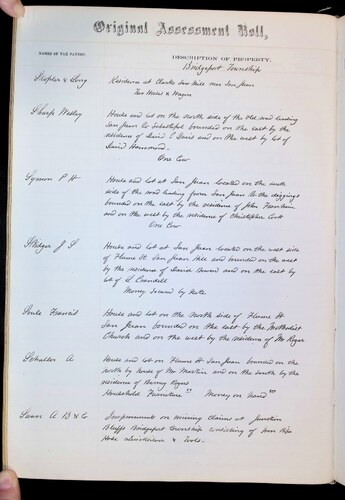 Original Assessment Roll,
NAMES OF TAX PAYERS.
DESCRIPTION OF PROPERTY.
Bridgeport Township
Residence at Clarks Saw Mill near San Juan
Two Horses & Wagon
Sharp Wesley
House and lot on the north side of the old road leading
San Juan to bounded on the east by the
residence of David C Davis and on the west by lot of
David Hammond.
One Cow
Symon P H
House and lot at San Juan located on the south
side of the road leading from San Juan to the diggings
bounded on the east by the residence of John Farnham
and on the west by the residence of Christopher Cook
One Cow
J S
House and lot at San Juan located on the west side
of Flume St San Juan Hill and bounded on the west
by the residence of David and on the east by
lot of S Crandell
Money Secured by Note
Soule Francis
House and lot on the North side of Flume St
San Juan bounded on the east by the Methodist
Church and on the west by the residence of Mr
A
House and lot on Flume St San Juan bounded on the
north by house of Mr Martin and on the south by the
residence of Henry
Household Furniture Money on hand
Swan A B & Co
Improvements on mining claims at Junction
Bluffs Bridgeport Township consisting of Iron Pipe
Hose Quicksilver & Tools.